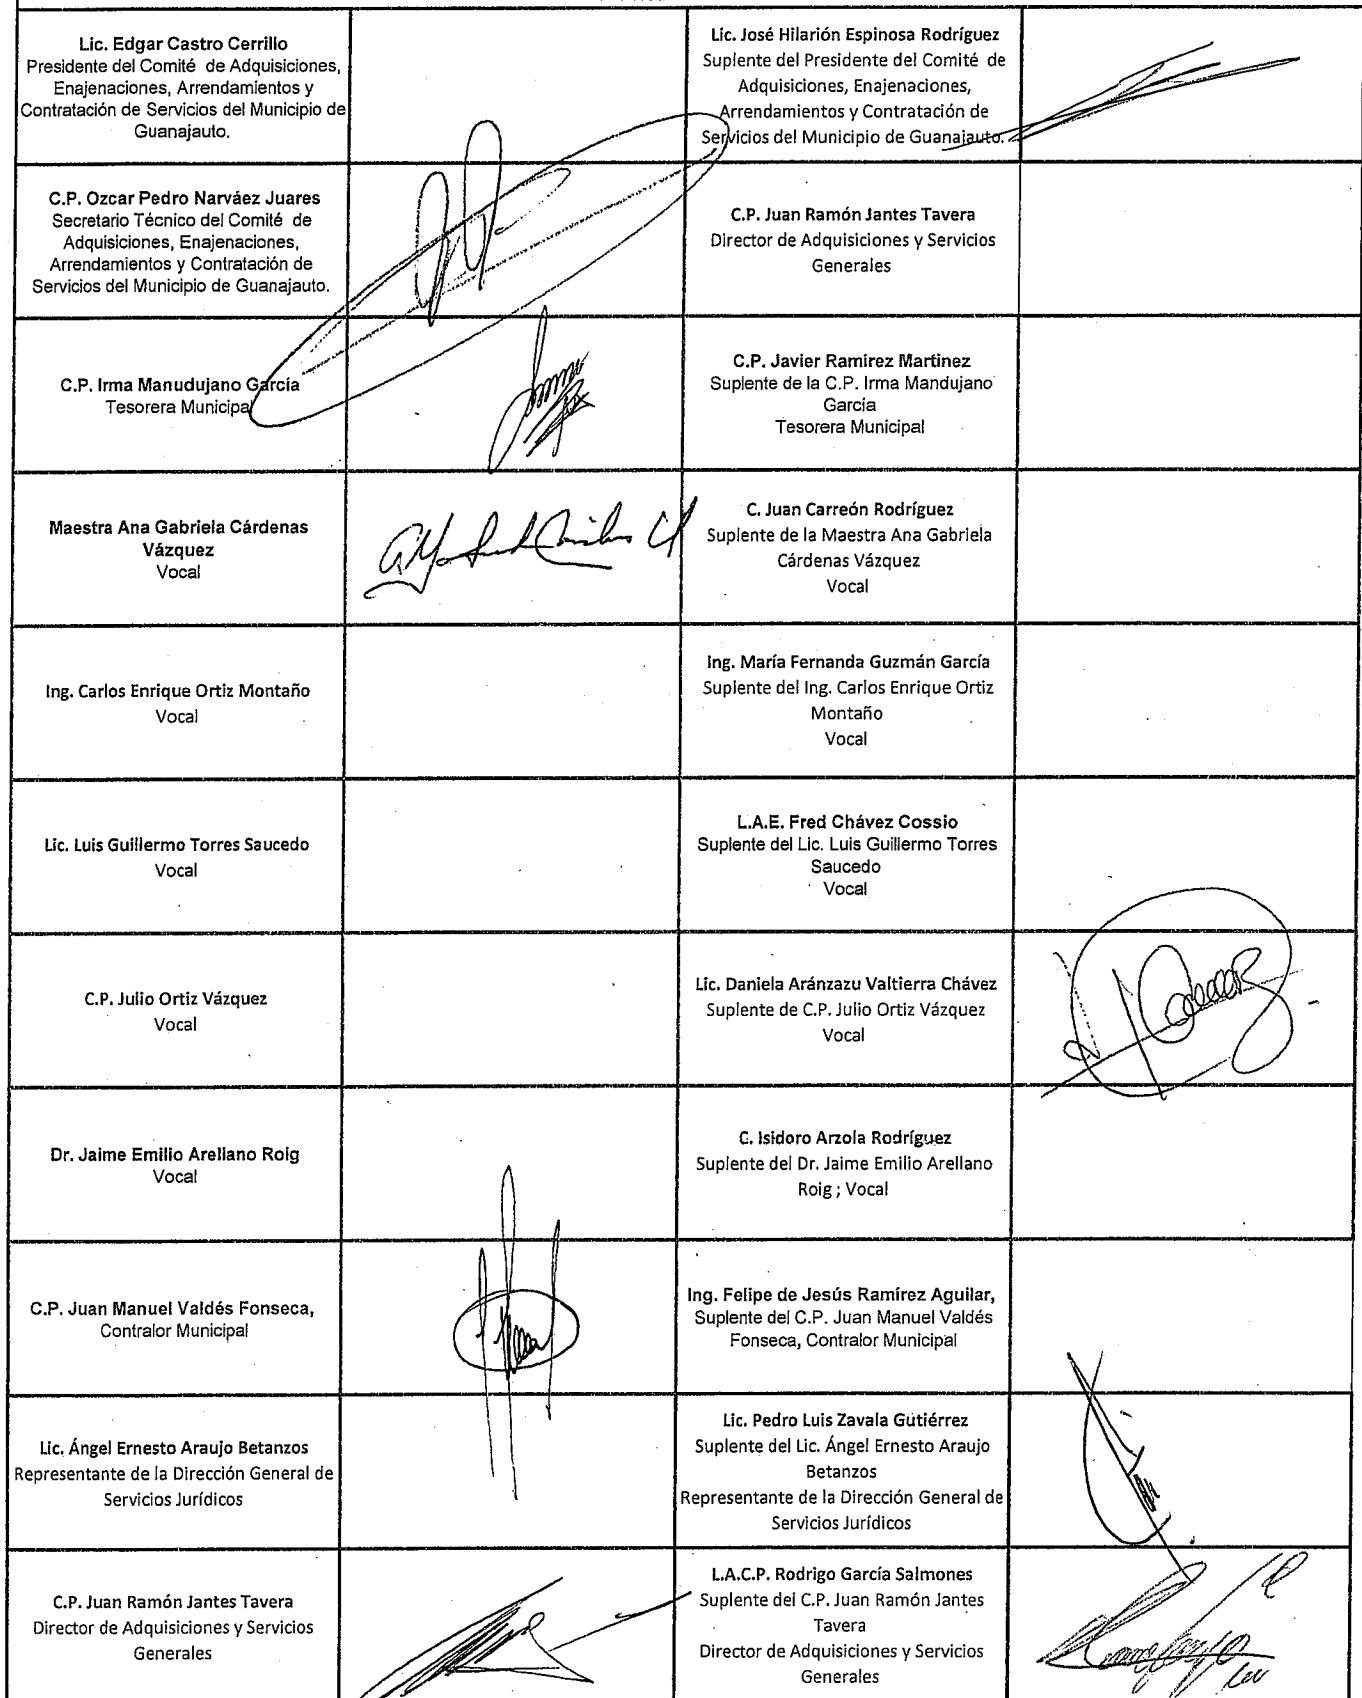 Lic. Edgar Castro Cerrillo
Presidente del Comité de Adquisiciones,
Enajenaciones, Arrendamientos y
Contratación de Servicios del Municipio de
Guanajauto.
Lic. José Hilarión Espinosa Rodríguez
Suplente del Presidente del Comité de
Adquisiciones, Enajenaciones,
Arrendamientos y Contratación de
Servicios del Municipio de Guanajauto.
C.P. Ozcar Pedro Narváez Juares
Secretario Técnico del Comité de
Adquisiciones, Enajenaciones,
Arrendamientos y Contratación de
Servicios del Municipio de Guanajauto.
C.P. Juan Ramón Jantes Tavera
Director de Adquisiciones y Servicios
Generales
C.P. Irma Manudujano García
Tesorera Municipal
C.P. Javier Ramirez Martinez
Suplente de la C.P. Irma Mandujano
García
Tesorera Municipal
Maestra Ana Gabriela Cárdenas
Vázquez
Vocal
C. Juan Carreón Rodríguez
Suplente de la Maestra Ana Gabriela
Cárdenas Vázquez
Vocal
Ing. Carlos Enrique Ortiz Montaño
Vocal
Ing. María Fernanda Guzmán García
Suplente del Ing. Carlos Enrique Ortiz
Montaño
Vocal
Lic. Luis Guillermo Torres Saucedo
Vocal
L.A.E. Fred Chávez Cossio
Suplente del Lic. Luis Guillermo Torres
Saucedo
Vocal
C.P. Julio Ortiz Vázquez
Vocal
Lic. Daniela Aránzazu Valtierra Chávez
Suplente de C.P. Julio Ortiz Vázquez
Vocal
Dr. Jaime Emilio Arellano Roig
Vocal
C. Isidoro Arzola Rodríguez
Suplente del Dr. Jaime Emilio Arellano
Roig ; Vocal
C.P. Juan Manuel Valdés Fonseca,
Contralor Municipal
Ing. Felipe de Jesús Ramírez Aguilar,
Suplente del C.P. Juan Manuel Valdés
Fonseca, Contralor Municipal
Lic. Ángel Ernesto Araujo Betanzos
Representante de la Dirección General de
Servicios Jurídicos
Lic. Pedro Luis Zavala Gutiérrez
Suplente del Lic. Ángel Ernesto Araujo
Betanzos
Representante de la Dirección General de
Servicios Jurídicos
C.P. Juan Ramón Jantes Tavera
Director de Adquisiciones y Servicios
Generales
L.A.C.P. Rodrigo García Salmones
Suplente del C.P. Juan Ramón Jantes
Tavera
Director de Adquisiciones y Servicios
Generales